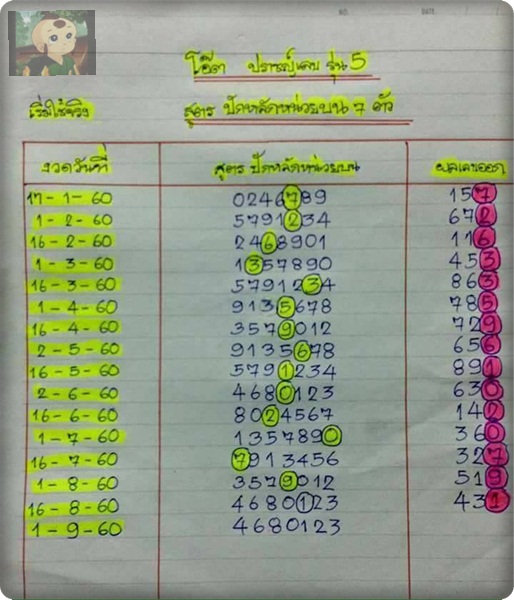 NO. DATE.
โอ๊ตา ปราชญ์แคน รุ่น 5
เริ่มใช้จริง สูตร ปักหลักหน่วยบน 7 ตัว
งวดวันที่ สูตร ปักหลักหน่วยบน ผลเลขออก
17-1-60 0246789 157
1-2-60 5791234 672
16-2-60 2468901 116
1-3-60 1357890 453
16-3-60 5791234 863
1-4-60 9135678 785
16-4-60 3579012 729
2-5-60 9135678 656
16-5-60 5791234 891
2-6-60 4680123 630
16-6-60 8024567 142
1-7-60 1357890 360
16-7-60 7913456 327
1-8-60 3579012 519
16-8-60 4680123 431
1-9-60 4680123